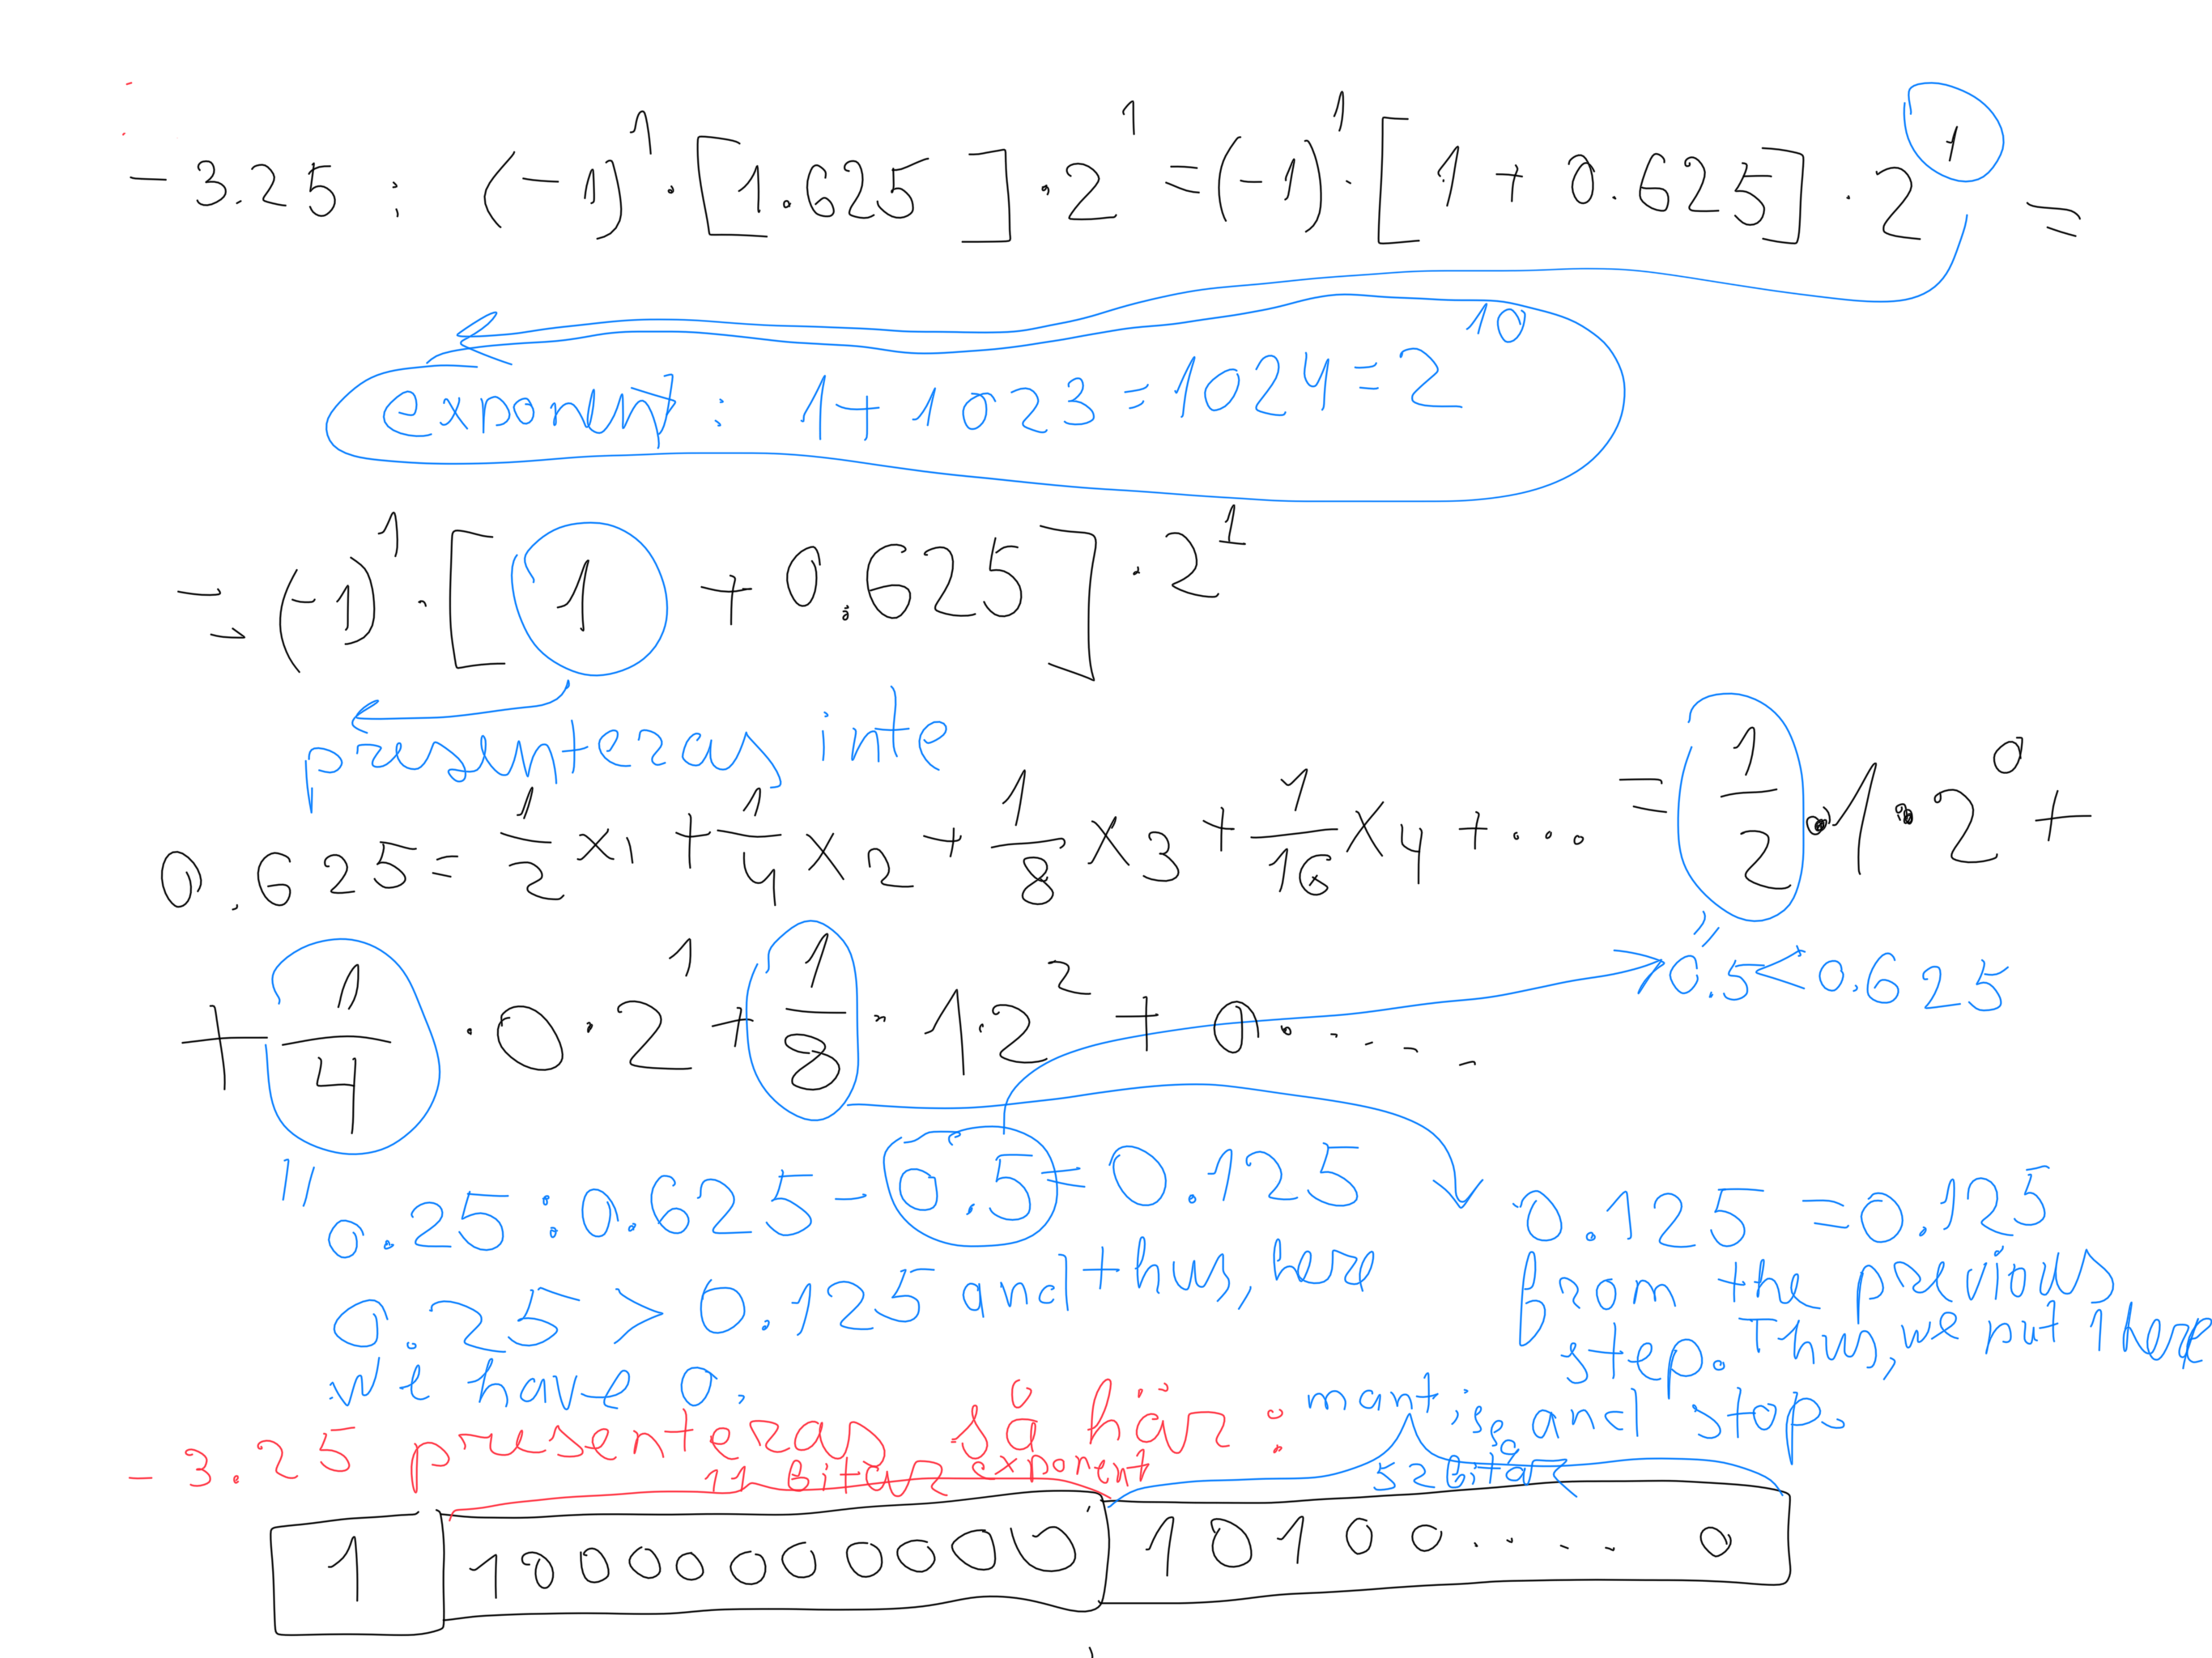 -3.25 : (-1)^1 · [1.625] · 2^1 = (-1)^1 · [1 + 0.625] · 2^1 =
exponent: 1 + 1023 = 1024 = 2^10
= (-1)^1 · [1 + 0.625] · 2^1
presenteras inte
0.625 = 1/2 x1 + 1/4 x2 + 1/8 x3 + 1/16 x4 + ... = 1/2 · 1 · 2^0 +
+ 1/4 · 0 · 2^1 + 1/8 · 1 · 2^2 + 0 · ....
" 0.5 < 0.625
" 0.25 : 0.625 - 0.5 = 0.125
0.25 > 0.125 and thus, here
we have 0.
0.125 = 0.125
from the previous
step. Thus, we put 1 here
and stop.
-3.25 presenteras så här:
11 Bitar exponent
mantissa
52 Bitar
1 100000000000 10100..... 0